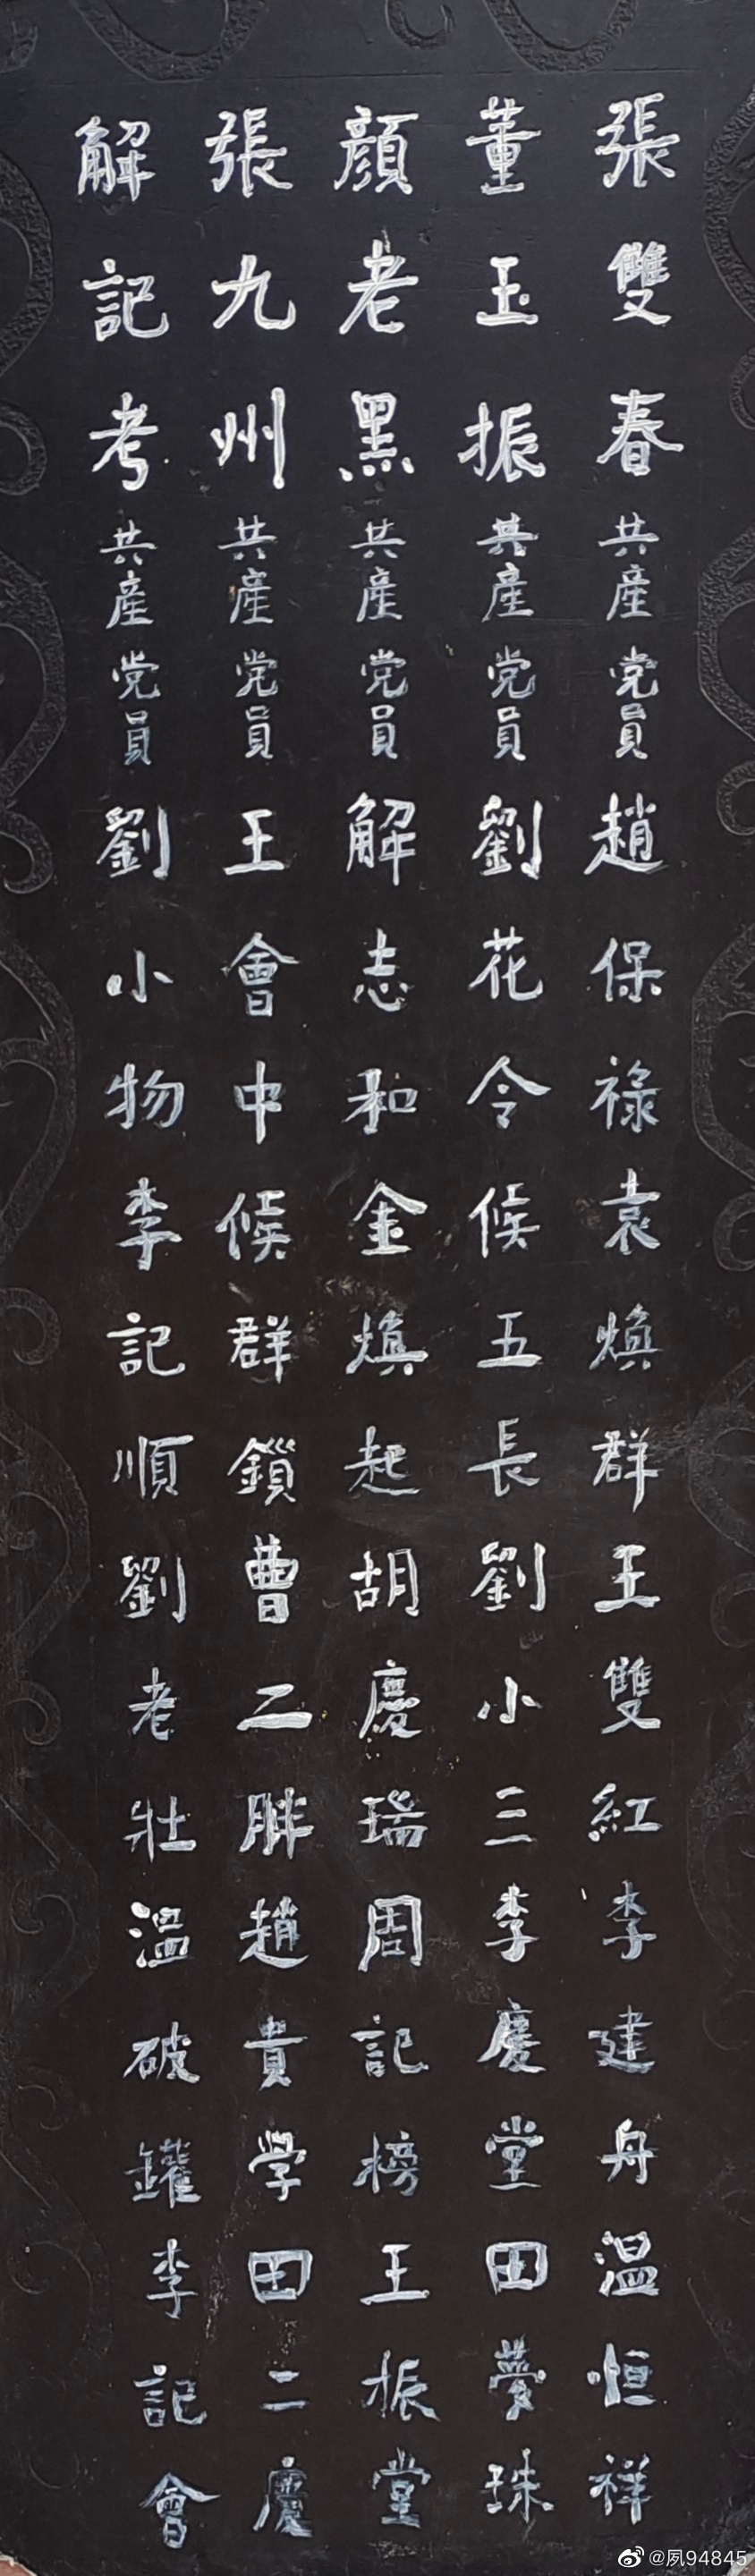 張雙春共産党員趙保祿袁煥群王雙紅李建舟溫恒祥
董玉振共産党員劉花令候五長劉小三李慶堂田夢珠
顔老黑共産党員解志和金煥起胡慶瑞周記榜王振堂
張九州共産党員王會中候群鎖曹二胖趙貴学田二慶
解記考共産党員劉小物李記順劉老壯溫破罐李記會
@夙94845